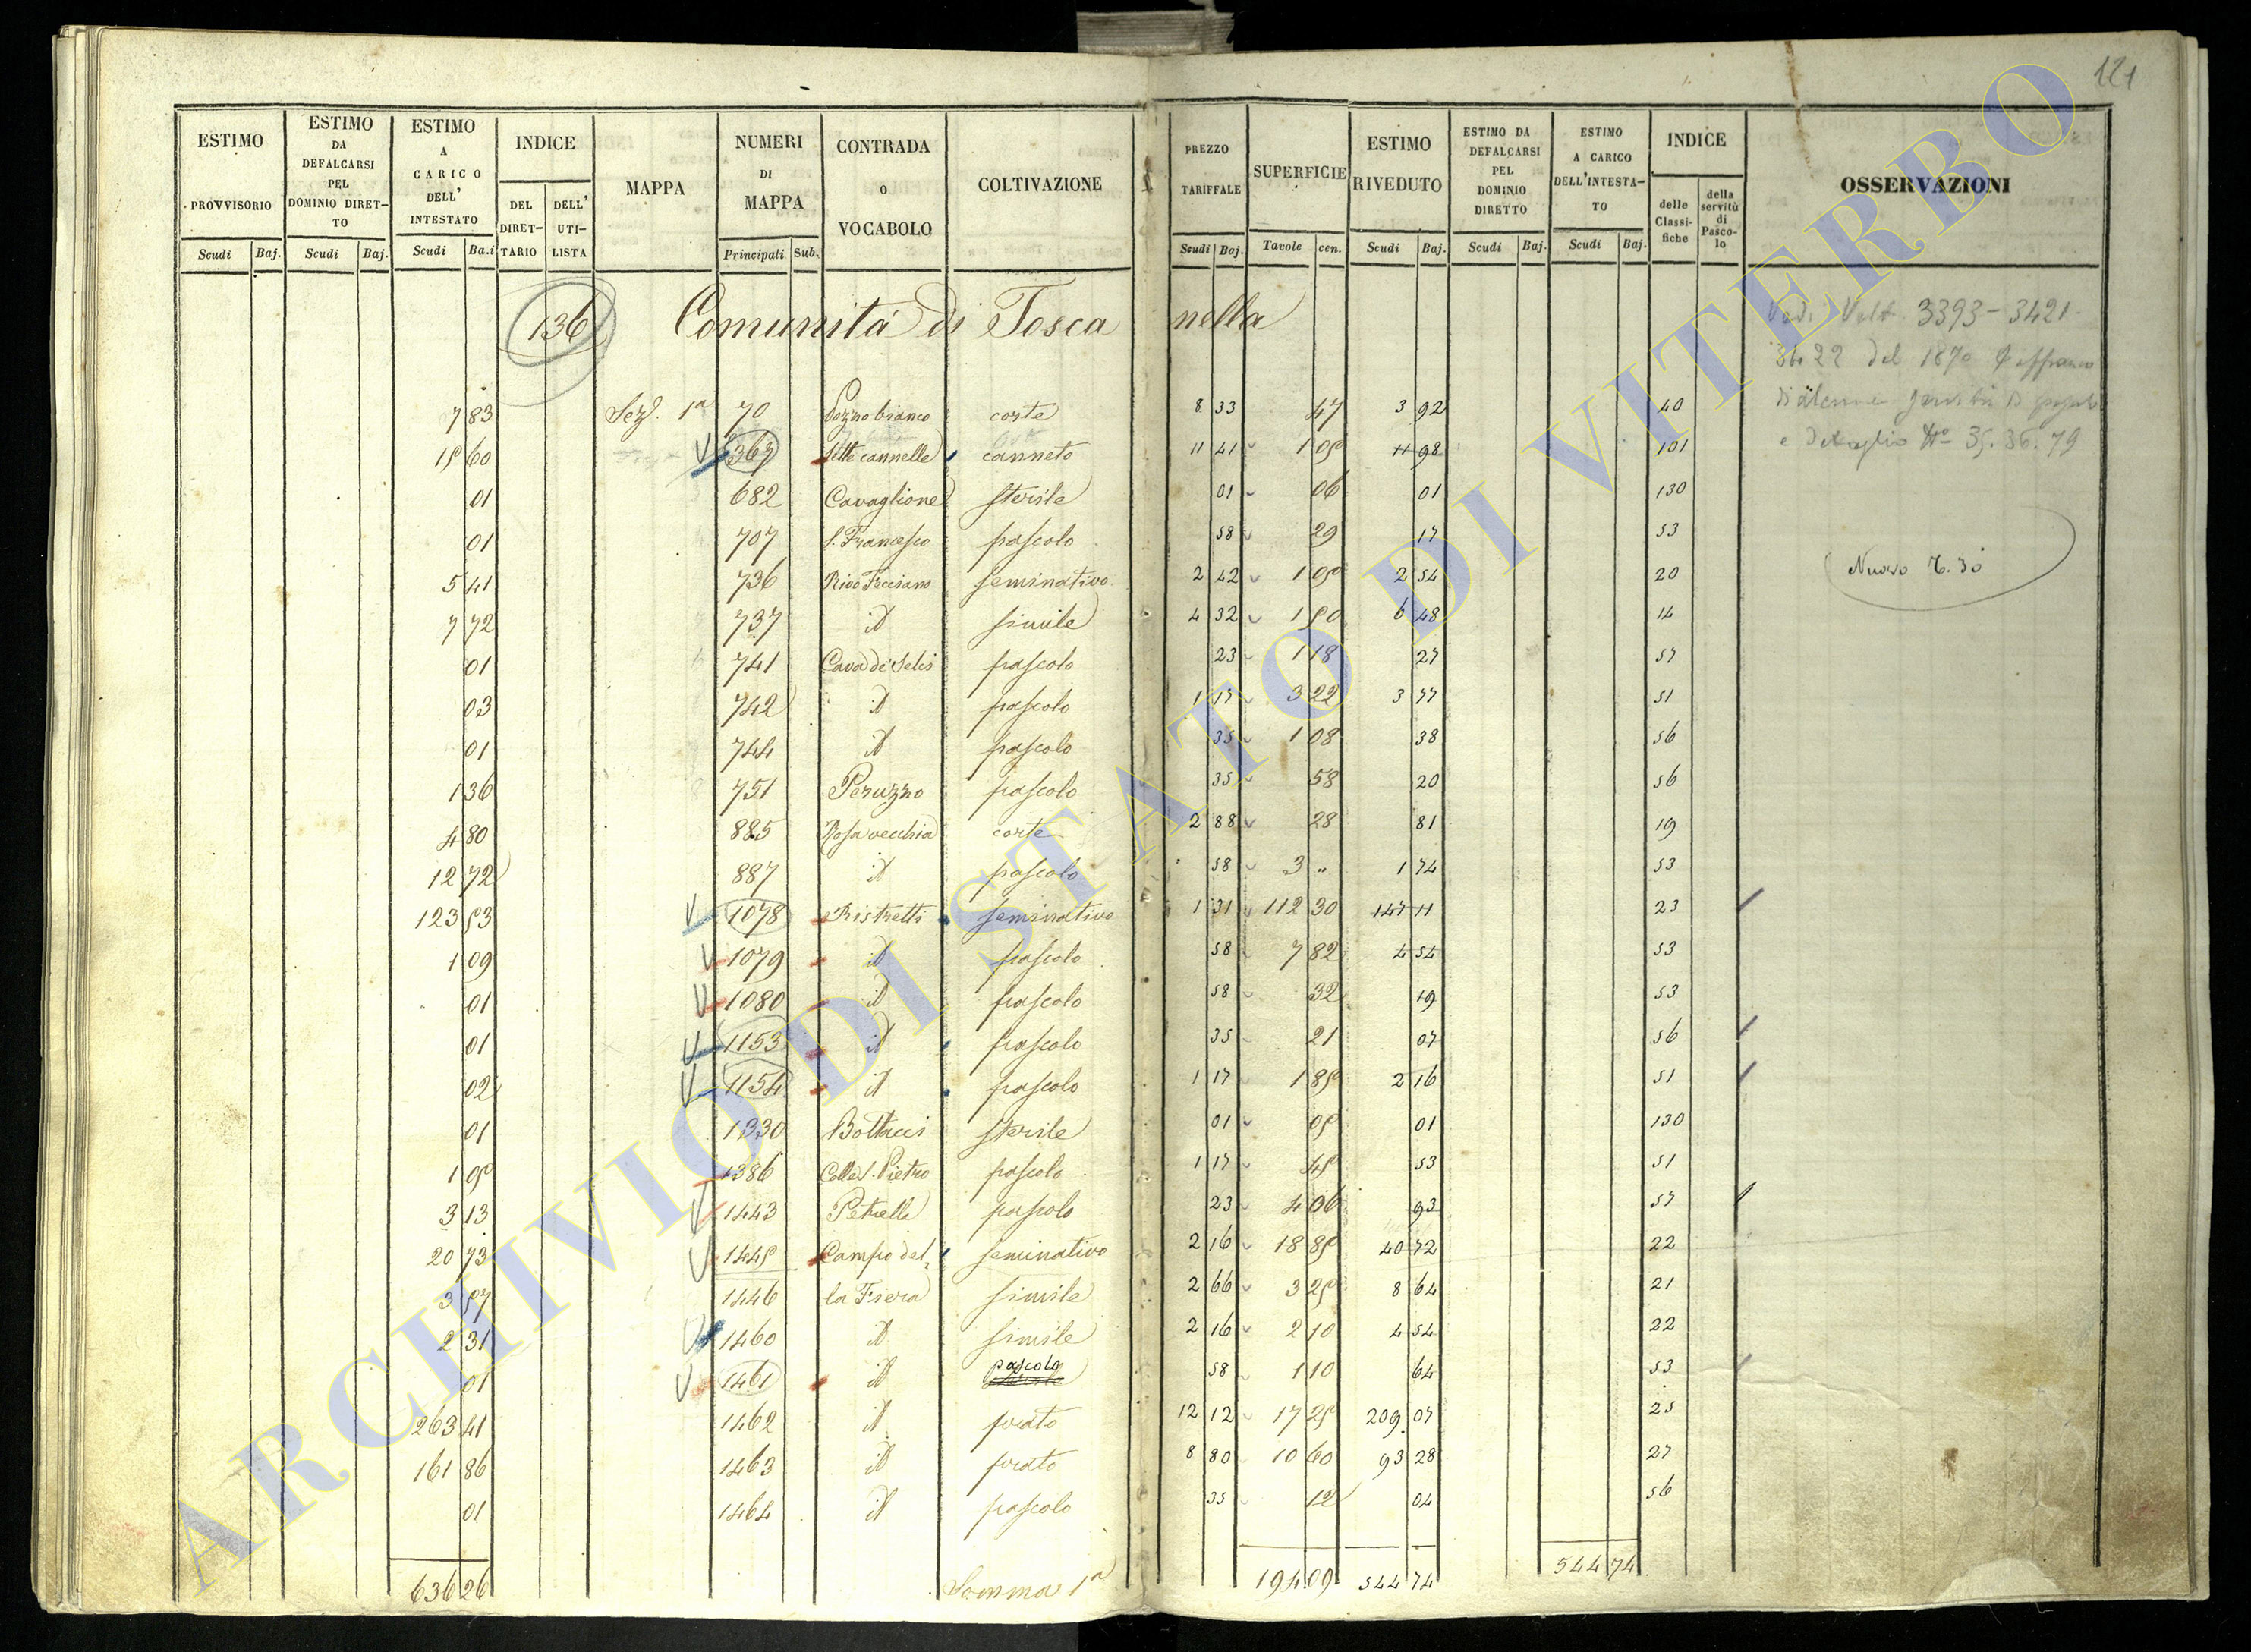 121
ESTIMO PROVVISORIO | ESTIMO DA DEFALCARSI PEL DOMINIO DIRET-TO | ESTIMO A CARICO DELL' INTESTATO | INDICE | MAPPA | NUMERI DI MAPPA | CONTRADA O VOCABOLO | COLTIVAZIONE | PREZZO TARIFFALE | SUPERFICIE | ESTIMO RIVEDUTO | ESTIMO DA DEFALCARSI PEL DOMINIO DIRETTO | ESTIMO A CARICO DELL'INTESTA-TO | INDICE | OSSERVAZIONI
Scudi | Baj. | Scudi | Baj. | Scudi | Ba.i | DEL DIRET-TARIO | DELL' UTI-LISTA | Principali | Sub. | Scudi | Baj. | Tavole | cen. | Scudi | Baj. | Scudi | Baj. | Scudi | Baj. | delle Classi-fiche | della servitù di Pasco-lo
136 Comunità di Tosca nella
3393 - 3421
del 1870
35. 36. 79
Nuovo
7 83 | Sez. 1a | 70 | Pozzo bianco | corte | 8 33 | 47 | 3 92 | 40
15 60 | 367 | Sette cannelle | canneto | 11 41 | 1 05 | 11 98 | 101
01 | 682 | Cavaglione | sterile | 01 | 06 | 01 | 130
01 | 707 | S. Francesco | pascolo | 58 | 29 | 17 | 53
5 41 | 736 | Rivo | seminativo | 2 42 | 1 05 | 2 54 | 20
7 72 | 737 | id | simile | 4 32 | 1 50 | 6 48 | 14
01 | 741 | Cava de Selci | pascolo | 23 | 1 18 | 27 | 57
03 | 742 | id | pascolo | 1 17 | 3 22 | 3 77 | 51
01 | 744 | id | pascolo | 35 | 1 08 | 38 | 56
1 36 | 751 | Peruzzo | pascolo | 35 | 58 | 20 | 56
4 80 | 885 | Rosa vecchia | corte | 2 88 | 28 | 81 | 19
12 72 | 887 | id | pascolo | 58 | 3 " | 1 74 | 53
123 53 | 1078 | Ristretti | seminativo | 1 31 | 112 30 | 147 11 | 23
1 09 | 1079 | id | pascolo | 58 | 7 82 | 4 54 | 53
01 | 1080 | id | pascolo | 58 | 32 | 19 | 53
01 | 1153 | id | pascolo | 35 | 21 | 07 | 56
02 | 1154 | id | pascolo | 1 17 | 1 85 | 2 16 | 51
01 | 1330 | Bottacci | sterile | 01 | 05 | 01 | 130
1 05 | 1386 | Colle S. Pietro | pascolo | 1 17 | 45 | 53 | 51
3 13 | 1443 | Petrella | pascolo | 23 | 4 06 | 93 | 57
20 73 | 1445 | Campo del- | seminativo | 2 16 | 18 85 | 40 72 | 22
3 57 | 1446 | la Fiera | simile | 2 66 | 3 25 | 8 64 | 21
2 31 | 1460 | id | simile | 2 16 | 2 10 | 4 54 | 22
01 | 1461 | id | pascolo | 58 | 1 10 | 64 | 53
263 41 | 1462 | id | prato | 12 12 | 17 25 | 209 07 | 25
161 86 | 1463 | id | prato | 8 80 | 10 60 | 93 28 | 27
01 | 1464 | id | pascolo | 35 | 12 | 04 | 56
636 26 | Somma 1a | 194 09 | 544 74 | 544 74
ARCHIVIO DI STATO DI VITERBO